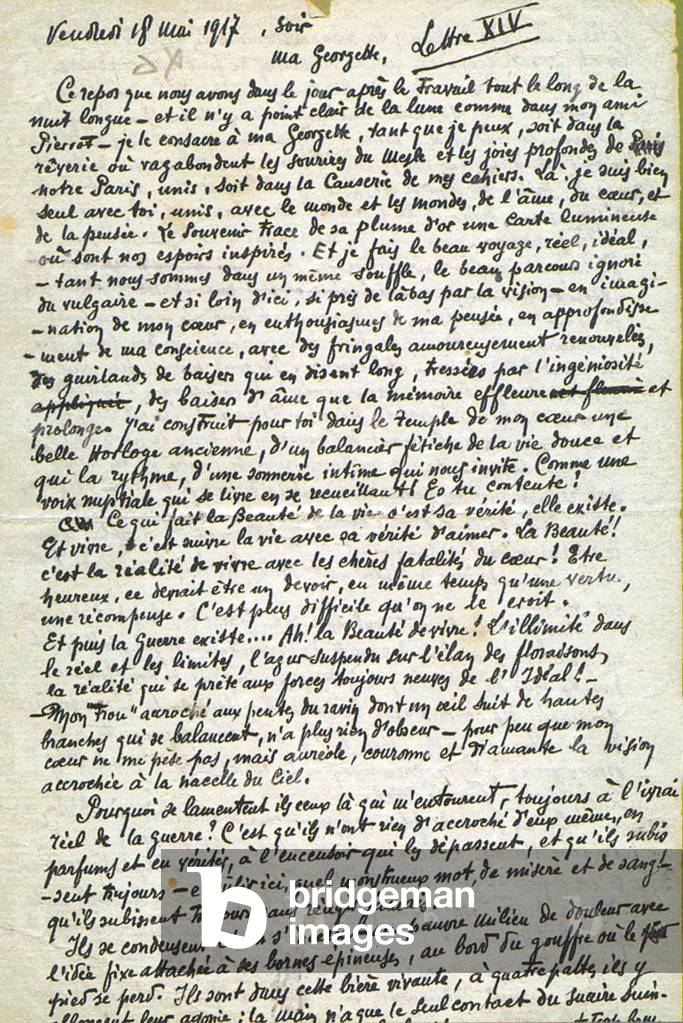 Vendredi 18 Mai 1917, Soir
Lettre XIV
Ma Georgette,
Ce repos que nous avons dans le jour après le Travail tout le long de la
nuit longue – et il n'y a point clair de la lune comme dans mon ami
Pierrot – je le consacre à ma Georgette, tant que je peux, soit dans la
rêverie où vagabondent les sourires du Mesle et les joies profondes de Paris
notre Paris, unis, soit dans la Causerie de mes cahiers. Là, je suis bien
seul avec toi, unis, avec le monde et les mondes, de l'âme, du cœur, et
de la pensée. Le Souvenir trace de sa plume d'or une carte lumineuse
où sont nos espoirs inspirés. Et je fais le beau voyage, réel, idéal,
– tant nous sommes dans un même souffle, le beau parcours ignoré
du vulgaire – et si loin d'ici, si près de là-bas par la vision – en imagi-
-nation de mon cœur, en enthousiasmes de ma pensée, en approfondisse-
-ment de ma conscience, avec des fringales amoureusement renouvelées,
des guirlands de baisers qui en disent long, tressées par l'ingéniosité
appliquée, des baisers d'âme que la mémoire effleure et
prolonge. J'ai construit pour toi dans le temple de mon cœur une
belle Horloge ancienne, d'un balancier fétiche de la vie douce et
qui la rythme, d'une sonnerie intime qui nous invite. Comme une
voix nuptiale qui se livre en se recueillant! Es tu contente?
Ce qui fait la Beauté de la vie c'est sa vérité, elle existe.
Et vivre, c'est suivre la vie avec sa vérité d'aimer. La Beauté!
c'est la réalité de vivre avec les chères fatalités du cœur! Etre
heureux, ce devrait être un devoir, en même temps qu'une vertu,
une récompense. C'est plus difficile qu'on ne le croit.
Et puis la Guerre existe.... Ah! la Beauté de vivre! L'illimité dans
le réel et les limites, l'azur suspendu sur l'élan des floraisons,
la réalité qui se prête aux forces toujours neuves de l'Idéal! –
– Mon "Trou" accroché aux pentes du ravin dont un œil suit de hautes
branches qui se balancent, n'a plus rien d'obscur – pour peu que mon
cœur ne me pèse pas, mais auréole, couronne et diamante la vision
accrochée à la nacelle du Ciel.
Pourquoi se lamentent ils ceux là qui m'entourent, toujours à l'ivrai
réel de la guerre? C'est qu'ils n'ont rien d'accroché d'eux même, en
parfums et en vérités, à l'encensoir qui les dépassent, et qu'ils subis
-sent toujours – ici, quel monstrueux mot de misère et de sang! –
qu'ils subissent
Ils se condensent pauvre milieu de douleur avec
l'idée fixe attachée à ses bornes épineuses, au bord du gouffre où le
pied se perd. Ils sont dans cette bière vivante, à quatre pattes, ils y
allongent leur agonie; la main n'a que le seul contact du suaire
b bridgeman
images